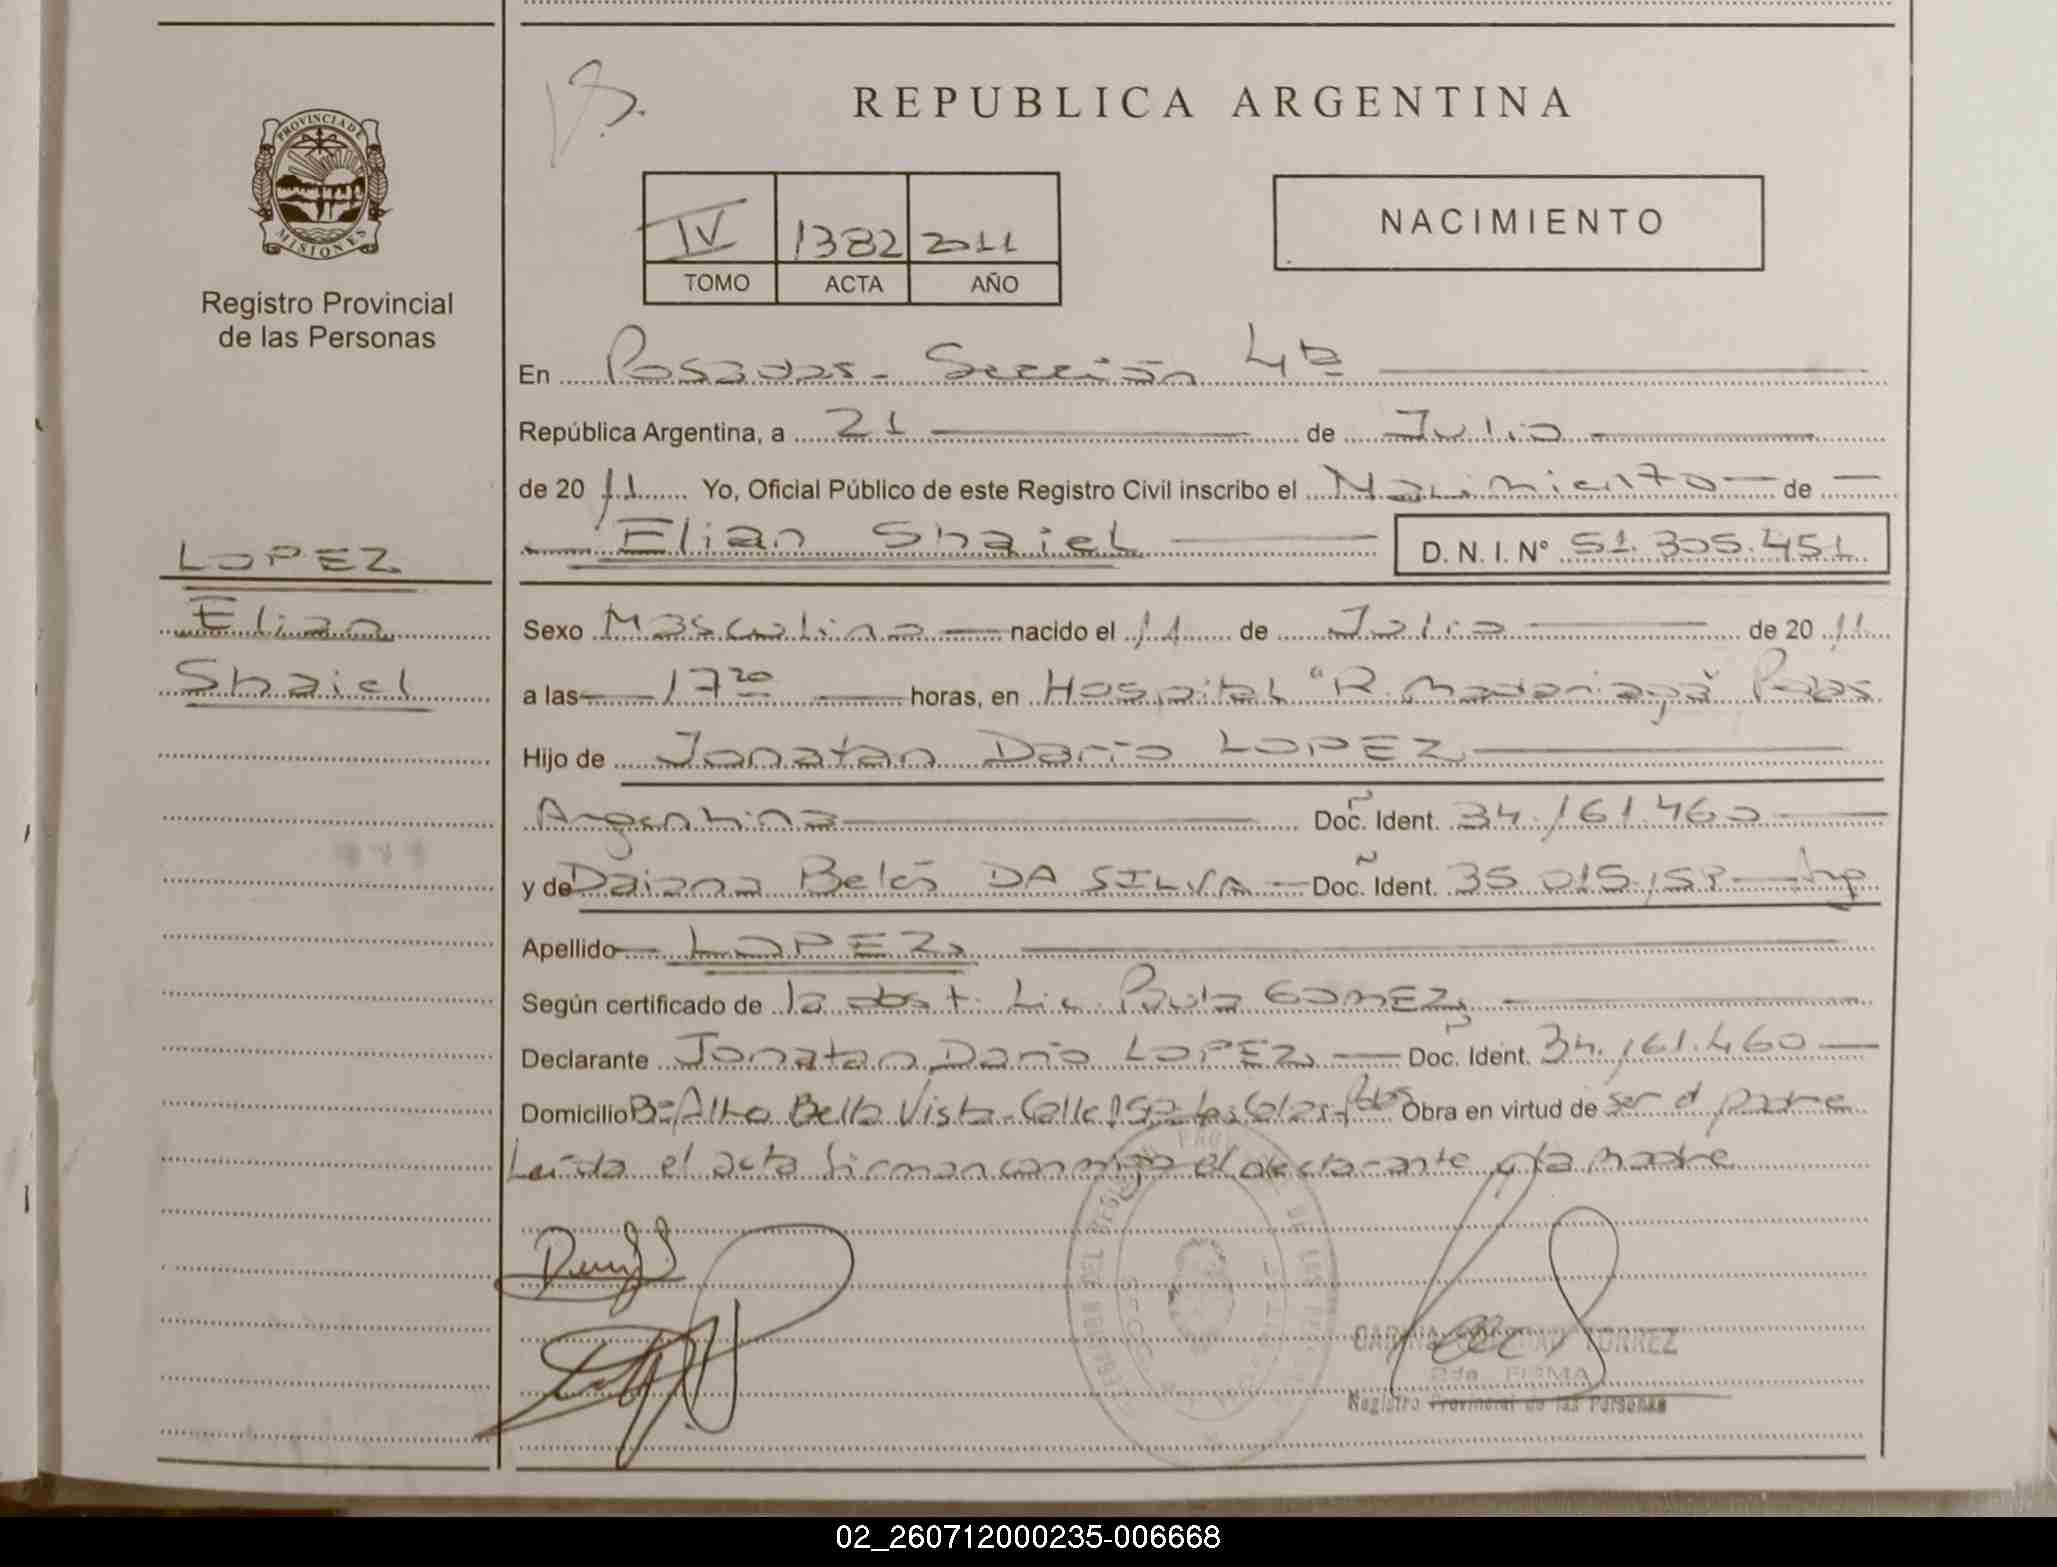 PROVINCIA DE
MISIONES
Registro Provincial
de las Personas
LOPEZ
Elian
Shaiel
REPUBLICA ARGENTINA
IV 1382 2011
TOMO ACTA AÑO
NACIMIENTO
En Posadas - Sección 4ta
República Argentina, a 21 de Julio
de 2011 Yo, Oficial Público de este Registro Civil inscribo el Nacimiento de
Elian Shaiel D. N. I. N° 51.305.451
Sexo Masculino nacido el 11 de Julio de 2011
a las 17 20 horas, en Hospital "R. Madariaga" Pdas
Hijo de Jonatan Dario LOPEZ
Argentina Doc. Ident. 34.161.460
y de Daiana Belén DA SILVA Doc. Ident. 35.015
Apellido LOPEZ
Según certificado de la obst. Lic. Paula GOMEZ
Declarante Jonatan Dario LOPEZ Doc. Ident. 34.161.460
Domicilio B° Alto Bella Vista - Calle Pdas Obra en virtud de ser el padre
Leída el acta firman conmigo el declarante y la madre
TORREZ
2da FIRMA
Registro Provincial de las Personas
02_260712000235-006668